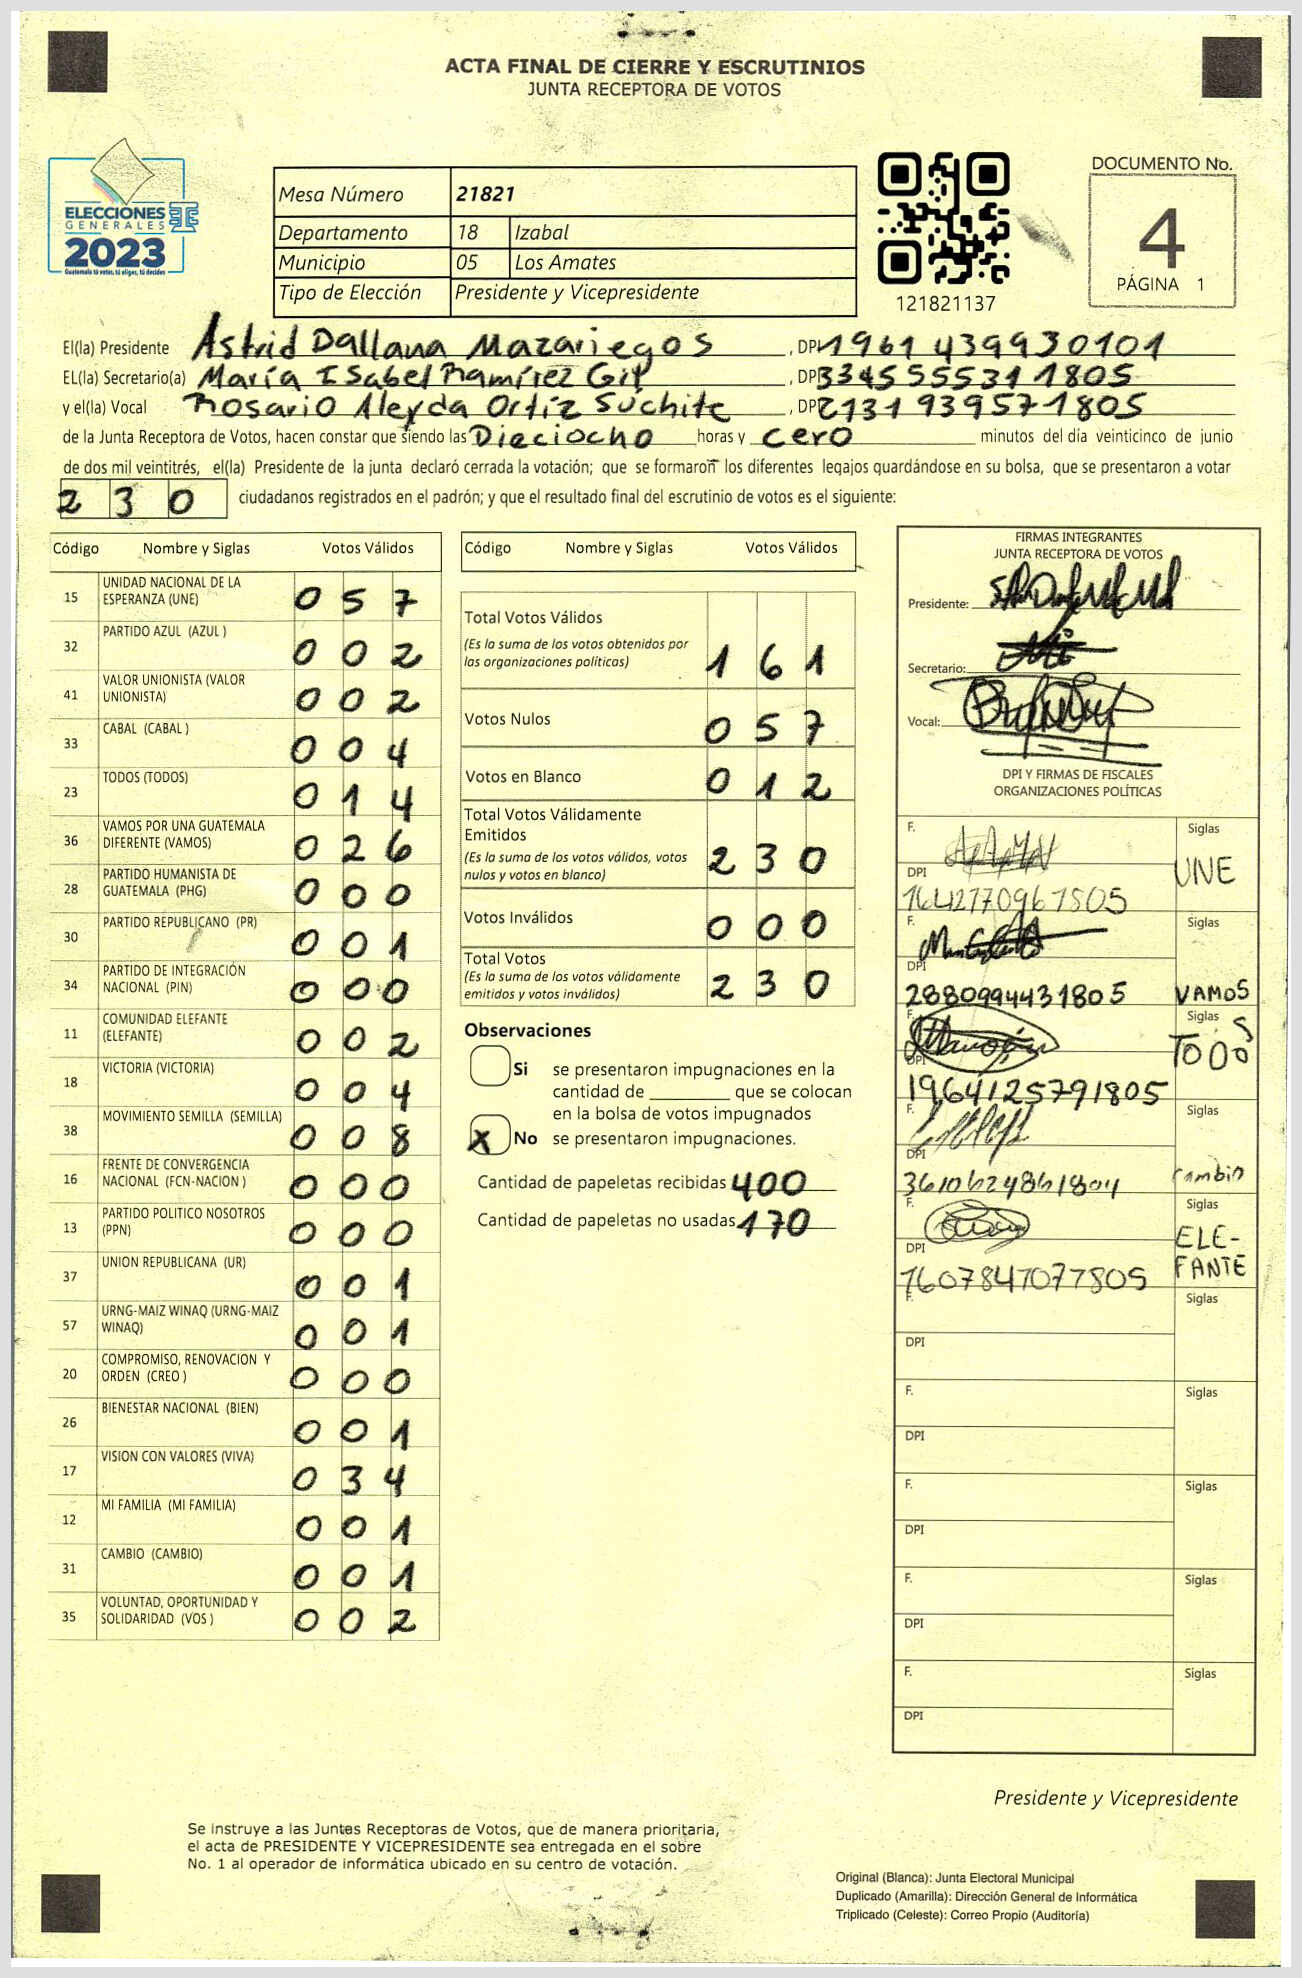 ACTA FINAL DE CIERRE Y ESCRUTINIOS
JUNTA RECEPTORA DE VOTOS
ELECCIONES
GENERALES
2023
Guatemala tú votas, tú eliges, tú decides
Mesa Número 21821
Departamento 18 Izabal
Municipio 05 Los Amates
Tipo de Elección Presidente y Vicepresidente
121821137
DOCUMENTO No.
4
PÁGINA 1
El(la) Presidente Astrid Dallana Mazariegos, DPI 1961 439930101
EL(la) Secretario(a) María Isabel Ramírez Gil, DPI 334555531 1805
y el(la) Vocal Rosario Aleyda Ortiz Súchite, DPI 2131939571805
de la Junta Receptora de Votos, hacen constar que siendo las Dieciocho horas y cero minutos del día veinticinco de junio
de dos mil veintitrés, el(la) Presidente de la junta declaró cerrada la votación; que se formaron los diferentes legajos guardándose en su bolsa, que se presentaron a votar
230 ciudadanos registrados en el padrón; y que el resultado final del escrutinio de votos es el siguiente:
Código Nombre y Siglas Votos Válidos
15 UNIDAD NACIONAL DE LA ESPERANZA (UNE) 057
32 PARTIDO AZUL (AZUL ) 002
41 VALOR UNIONISTA (VALOR UNIONISTA) 002
33 CABAL (CABAL ) 004
23 TODOS (TODOS) 014
36 VAMOS POR UNA GUATEMALA DIFERENTE (VAMOS) 026
28 PARTIDO HUMANISTA DE GUATEMALA (PHG) 000
30 PARTIDO REPUBLICANO (PR) 001
34 PARTIDO DE INTEGRACIÓN NACIONAL (PIN) 000
11 COMUNIDAD ELEFANTE (ELEFANTE) 002
18 VICTORIA (VICTORIA) 004
38 MOVIMIENTO SEMILLA (SEMILLA) 008
16 FRENTE DE CONVERGENCIA NACIONAL (FCN-NACION ) 000
13 PARTIDO POLITICO NOSOTROS (PPN) 000
37 UNION REPUBLICANA (UR) 001
57 URNG-MAIZ WINAQ (URNG-MAIZ WINAQ) 001
20 COMPROMISO, RENOVACION Y ORDEN (CREO ) 000
26 BIENESTAR NACIONAL (BIEN) 001
17 VISION CON VALORES (VIVA) 034
12 MI FAMILIA (MI FAMILIA) 001
31 CAMBIO (CAMBIO) 001
35 VOLUNTAD, OPORTUNIDAD Y SOLIDARIDAD (VOS ) 002
Código Nombre y Siglas Votos Válidos
Total Votos Válidos 161
(Es la suma de los votos obtenidos por
las organizaciones políticas)
Votos Nulos 057
Votos en Blanco 012
Total Votos Válidamente
Emitidos 230
(Es la suma de los votos válidos, votos
nulos y votos en blanco)
Votos Inválidos 000
Total Votos 230
(Es la suma de los votos válidamente
emitidos y votos inválidos)
Observaciones
Si se presentaron impugnaciones en la
cantidad de ________ que se colocan
en la bolsa de votos impugnados
X No se presentaron impugnaciones.
Cantidad de papeletas recibidas 400
Cantidad de papeletas no usadas 170
FIRMAS INTEGRANTES
JUNTA RECEPTORA DE VOTOS
Presidente:
Secretario:
Vocal:
DPI Y FIRMAS DE FISCALES
ORGANIZACIONES POLÍTICAS
F. Siglas
DPI UNE
1642770967805
F. Siglas
DPI
2880994431805 VAMOS
F. Siglas
DPI TODOS
1964125791805
F. Siglas
DPI
3610624861804 Cambio
F. Siglas
DPI ELE-
FANTE
1607847077805
F. Siglas
DPI
F. Siglas
DPI
F. Siglas
DPI
F. Siglas
DPI
F. Siglas
DPI
Presidente y Vicepresidente
Se instruye a las Juntas Receptoras de Votos, que de manera prioritaria,
el acta de PRESIDENTE Y VICEPRESIDENTE sea entregada en el sobre
No. 1 al operador de informática ubicado en su centro de votación.
Original (Blanca): Junta Electoral Municipal
Duplicado (Amarilla): Dirección General de Informática
Triplicado (Celeste): Correo Propio (Auditoría)